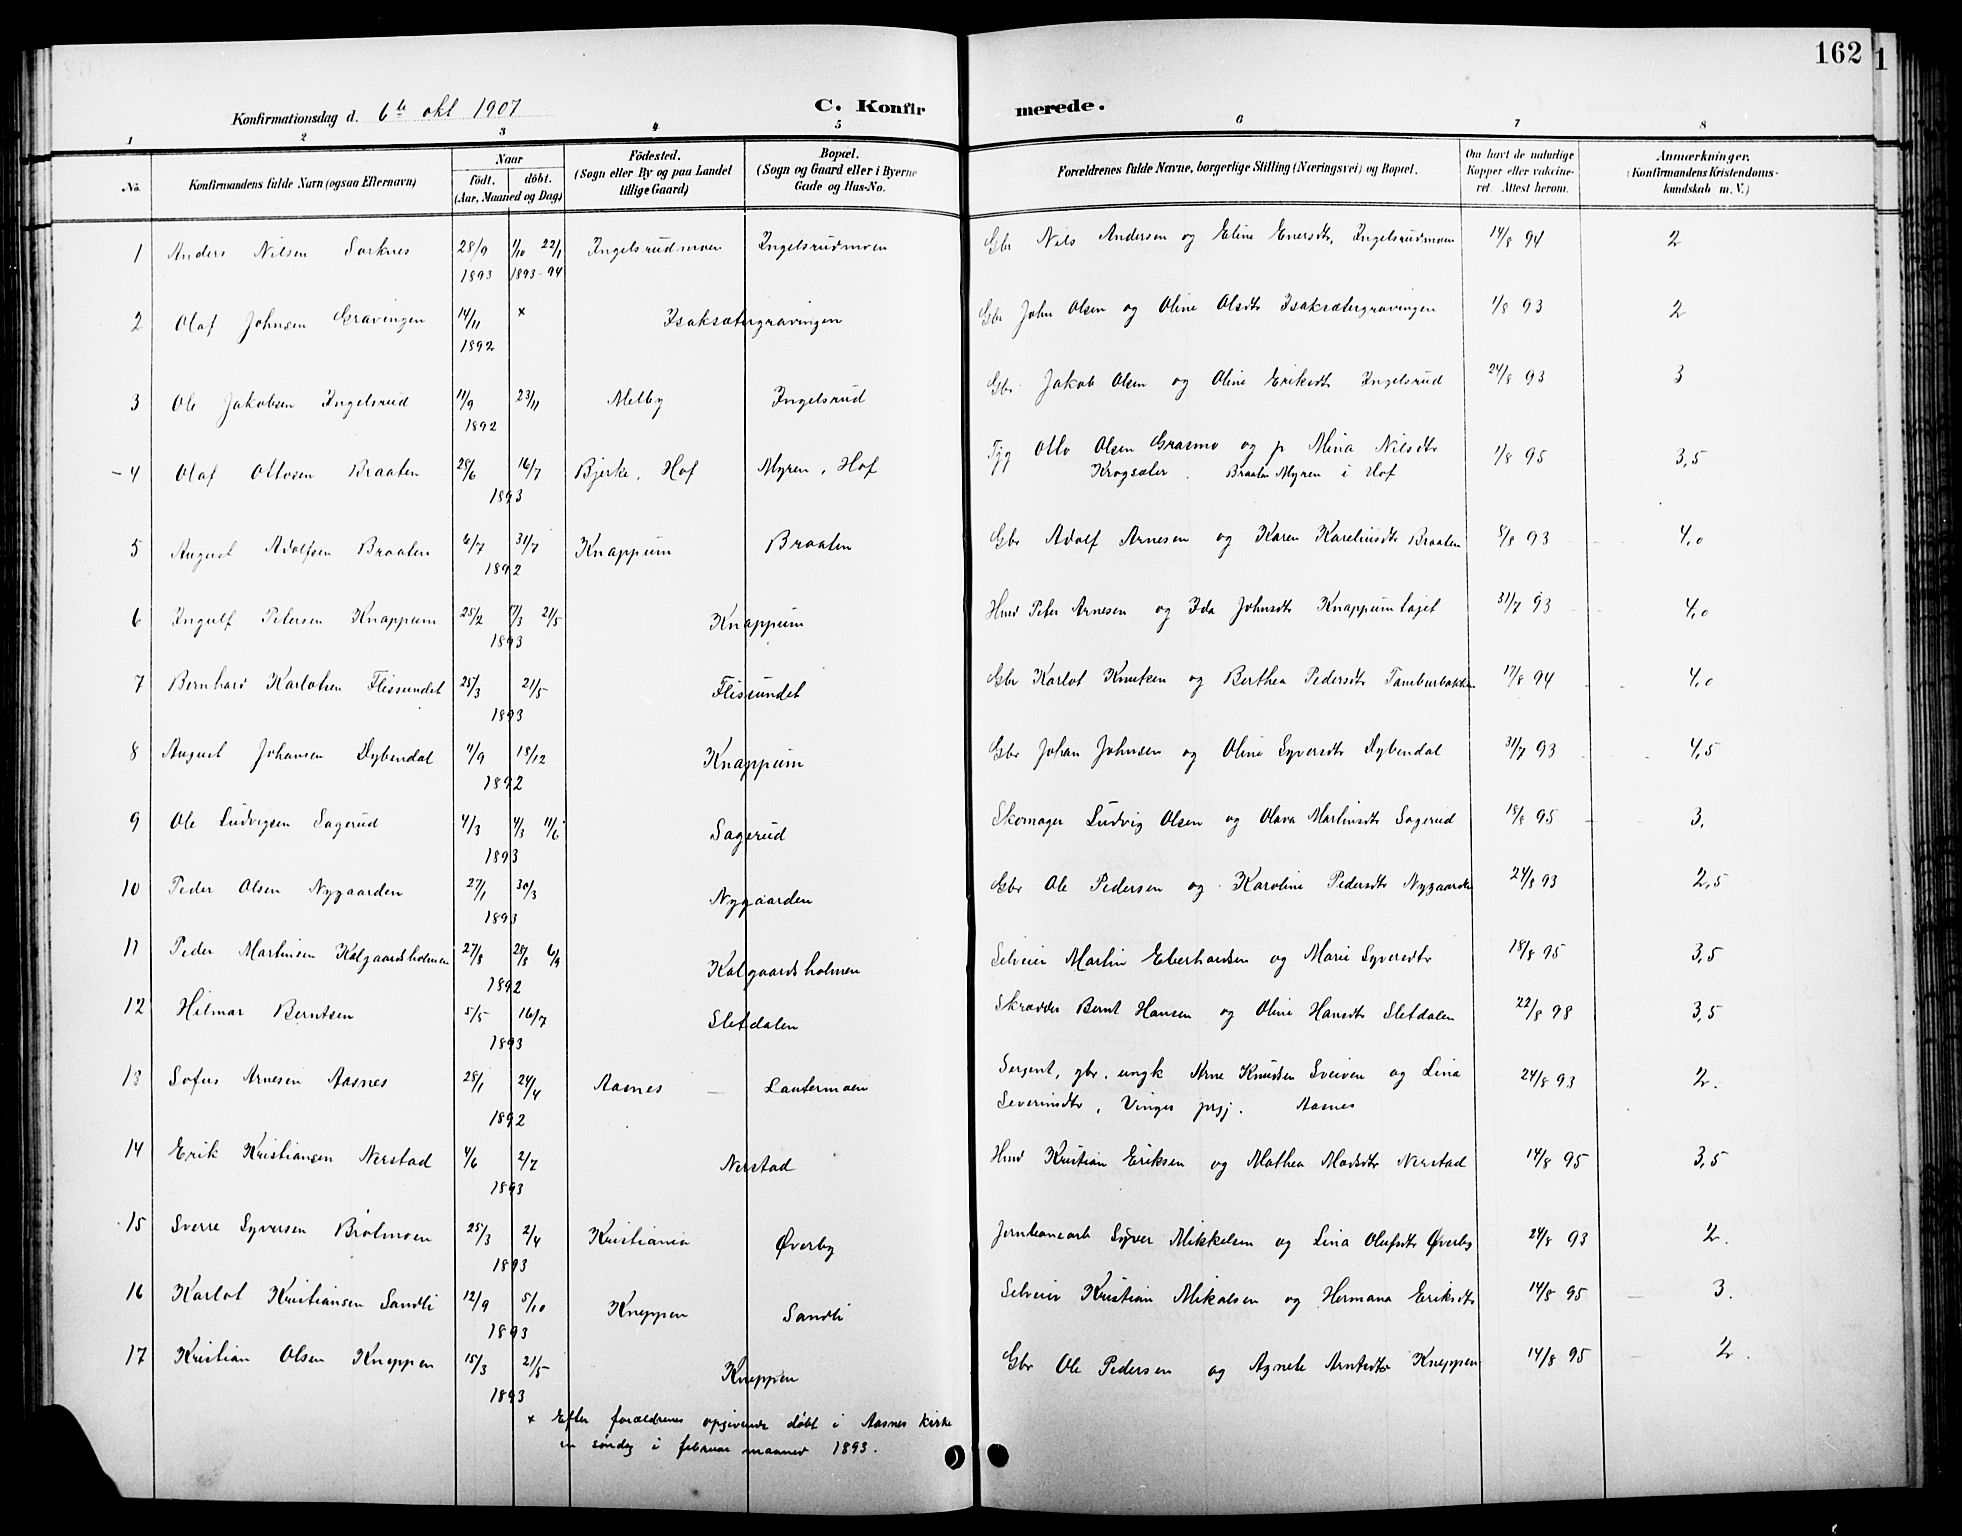 162
1
Konfirmationsdag d. 6te okt 1907
C. Konfirmerede.
1 2 3 4 5 6 7 8
No. Konfirmandens fulde Navn (ogsaa Efternavn) Naar Födt. döbt. (Aar, Maaned og Dag) Födested. (Sogn eller By og paa Landet tillige Gaard) Bopæl. (Sogn og Gaard eller i Byerne Gade og Hus-No. Forældrenes fulde Navne, borgerlige Stilling (Næringsvei) og Bopæl. Om havt de naturlige Kopper eller vakcineret. Attest herom. Anmærkninger. (Konfirmandens Kristendomskundskab m. V.)
1 Anders Nilsen Sorknes 28/9 1893 1/10 22/1 1893-94 Ingelsrudmoen Ingelsrudmoen Gbr Nils Andersen og Eline Enersdtr, Ingelsrudmoen 14/8 94 2
2 Olaf Johnsen Gravingen 14/11 1892 x Isaksætergravingen Gbr John Olsen og Oline Olsdtr Isaksætergravingen 1/8 93 2
3 Ole Jakobsen Ingelsrud 11/9 1892 23/11 Melby Ingelsrud Gbr Jakob Olsen og Oline Eriksdtr Ingelsrud 24/8 93 3
4 Olaf Ottosen Braaten 28/6 16/7 1893 Bjerke, Hof Myren, Hof Tjg Otto Olsen Grasmo og p Mina Nilsdtr 1/8 95 3,5
Krogsæter. Braaten Myren i Hof
5 August Adolfsen Braaten 6/7 31/7 1892 Knappum Braaten Gbr Adolf Arnesen og Karen Kareliusdtr Braaten 8/8 93 4,0
6 Ingulf Petersen Knappum 25/2 7/3 21/5 1893 Knappum Hmd Peter Arnesen og Ida Johnsdtr Knappumtajet 31/7 93 4,0
7 Bernhard Karlotsen Flissundet 25/3 21/5 1893 Flissundet Gbr Karlot Knutsen og Berthea Pedersdtr Tamburbakken 17/8 94 4,0
8 August Johansen Dybendal 11/9 18/12 1892 Knappum Gbr Johan Johnsen og Oline Syversdtr Dybendal 31/7 93 4,5
9 Ole Ludvigsen Sagerud 4/3 4/3 11/6 1893 Sagerud Skomager Ludvig Olsen og Olava Martinsdtr Sagerud 18/8 95 3.
10 Peder Olsen Nygaarden 27/1 30/3 1893 Nygaarden Gbr Ole Pedersen og Karoline Pedersdtr Nygaarden 24/8 93 2,5
11 Peder Martinsen Kalgaardsholmen 27/8 28/8 6/9 1892 Kalgaardsholmen Selveier Martin Eberhardsen og Marie Syversdtr 18/8 95 3,5
12 Hilmar Berntsen 5/5 16/7 1893 Sletdalen Skrædder Bernt Hansen og Oline Hansdtr Sletdalen 22/8 98 3,5
13 Sofus Arnesen Aasnes 28/1 24/4 1892 Aasnes Lautermoen Sergent, gbr. ungk Arne Knudsen Sveiven og Lina 24/8 93 2.
Severinsdtr, Vinger prgj. Aasnes
14 Erik Kristiansen Nerstad 4/6 2/7 1893 Nerstad Hmd Kristian Eriksen og Mathea Madsdtr Nerstad 14/8 95 3,5
15 Sverre Syversen Brolmoen 25/3 2/4 1893 Kristiania Øverby Jernbanearb Syver Mikkelsen og Lina Olufsdtr Øverby 24/8 93 2.
16 Karlot Kristiansen Sandli 12/9 5/10 1893 Kneppen Sandli Selveier Kristian Mikalsen og Hermana Eriksdtr 14/8 95 3.
17 Kristian Olsen Kneppen 15/3 21/5 1893 Kneppen Gbr Ole Pedersen og Agnete Arntsdtr Kneppen 14/8 95 2.
x Efter forældrenes opgivende döbt i Aasnes kirke
en søndag i februar maaned 1893.